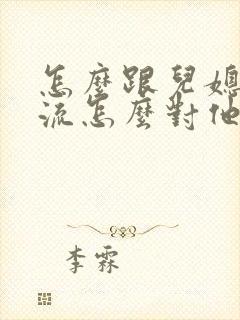 怎麼跟兒媳
流怎麼對他
李霖